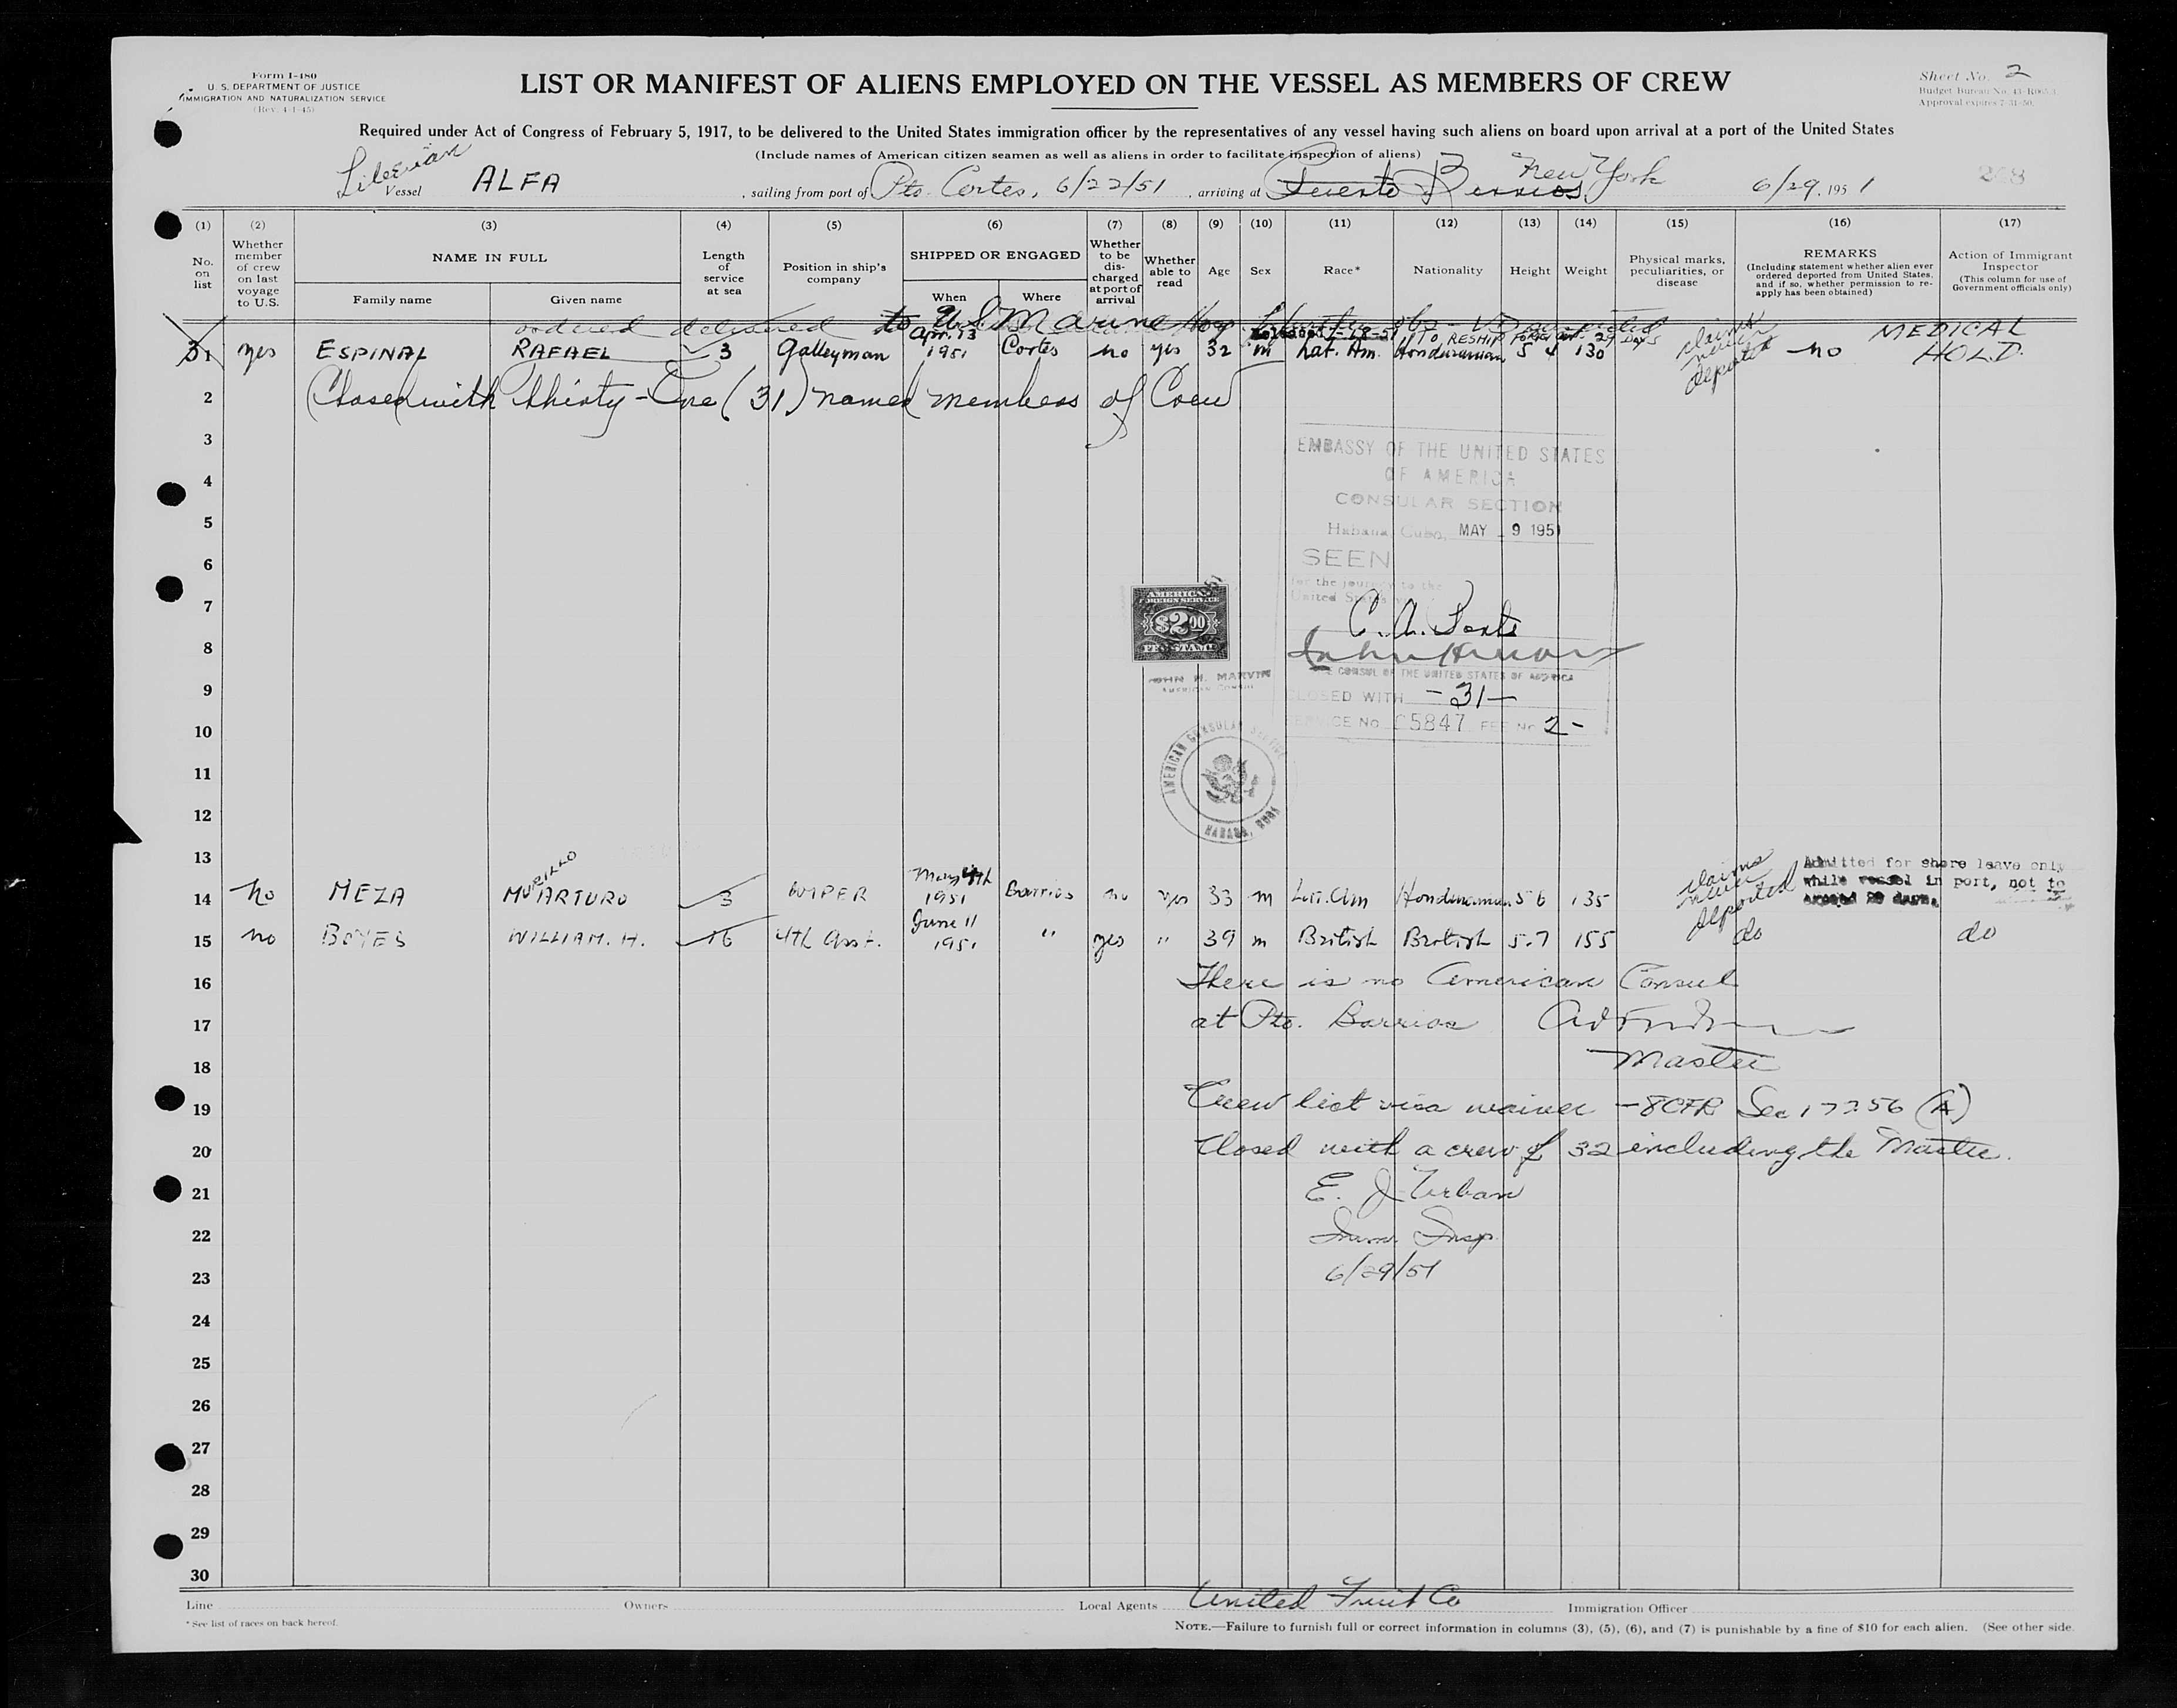 Form I-480
U. S. DEPARTMENT OF JUSTICE
IMMIGRATION AND NATURALIZATION SERVICE
(Rev. 4-1-45)
LIST OR MANIFEST OF ALIENS EMPLOYED ON THE VESSEL AS MEMBERS OF CREW
Sheet No. 2
Budget Bureau No. 43-R065.3
Approval expires 7-31-50.
Required under Act of Congress of February 5, 1917, to be delivered to the United States immigration officer by the representatives of any vessel having such aliens on board upon arrival at a port of the United States
(Include names of American citizen seamen as well as aliens in order to facilitate inspection of aliens)
Liberian
Vessel ALFA , sailing from port of Pto. Cortes, 6/22/51 , arriving at Puerto Barrios New York 6/29, 1951 208
(1) (2) (3) (4) (5) (6) (7) (8) (9) (10) (11) (12) (13) (14) (15) (16) (17)
No. on list
Whether member of crew on last voyage to U.S.
NAME IN FULL
Family name Given name
Length of service at sea
Position in ship's company
SHIPPED OR ENGAGED
When Where
Whether to be discharged at port of arrival
Whether able to read
Age
Sex
Race*
Nationality
Height
Weight
Physical marks, peculiarities, or disease
REMARKS
(Including statement whether alien ever ordered deported from United States, and if so, whether permission to reapply has been obtained)
Action of Immigrant Inspector
(This column for use of Government officials only)
ordered delivered to U.S. Marine Hosp.
TO RESHIP FOREIGN 29 DAYS
31 yes ESPINAL RAFAEL 3 Galleyman Apr. 13 1951 Cortes no yes 32 m Lat. Am. Honduranian 5 4 130 claims never deported no MEDICAL HOLD.
2 Closed with thirty-One (31) named members of Crew
3
EMBASSY OF THE UNITED STATES
4
OF AMERICA
CONSULAR SECTION
5
Habana, Cuba, MAY 9 1951
6
SEEN
for the journey to the
United States
7
AMERICAN
FOREIGN SERVICE
$2.00
FEE STAMP
8
JOHN H. MARVIN
AMERICAN CONSUL
CONSUL OF THE UNITED STATES OF AMERICA
9
CLOSED WITH -31-
SERVICE No. 5847 FEE No 2-
10
AMERICAN CONSULAR SECTION
HABANA, CUBA
11
12
13
14 No MEZA MURILLO ARTURO 3 WIPER May 4th 1951 Barrios no yes 33 m Lat. Am Honduranian 5 6 135 claims never deported Admitted for shore leave only while vessel in port, not to exceed 29 days.
15 no BOYES WILLIAM. H. 16 4th Asst. June 11 1951 " yes " 39 m British British 5.7 155 do do
16 There is no American Consul
17 at Pto. Barrios
18 Master
19 Crew list visa waiver - 8CFR Sec 177.56 (A)
20 Closed with a crew of 32 including the Master.
21 E. J. Urban
22 Imm. Insp.
23 6/29/51
24
25
26
27
28
29
30
Line Owners Local Agents United Fruit Co Immigration Officer
*See list of races on back hereof.
NOTE.—Failure to furnish full or correct information in columns (3), (5), (6), and (7) is punishable by a fine of $10 for each alien. (See other side.